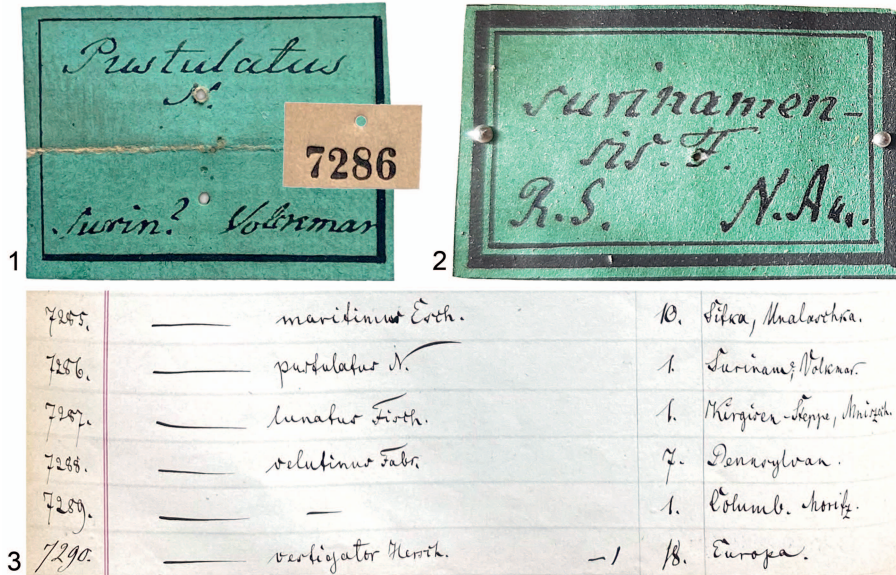 Pustulatus
N.
7286
Surin? Volkmar
1
surinamen-
sis. F.
R.S. N. Am.
2
7285. —— maritimus Esch. 10. Sitka, Unalaschka.
7286. —— pustulatus N. 1. Surinam?, Volkmar.
7287. —— lunatus Fisch. 1. Kirgisen-Steppe, Mniszech.
7288. —— velutinus Fabr. 7. Pennsylvan.
7289. —— — 1. Columb. Moritz.
7290. —— vestigator Hersch. –1 18. Europa.
3